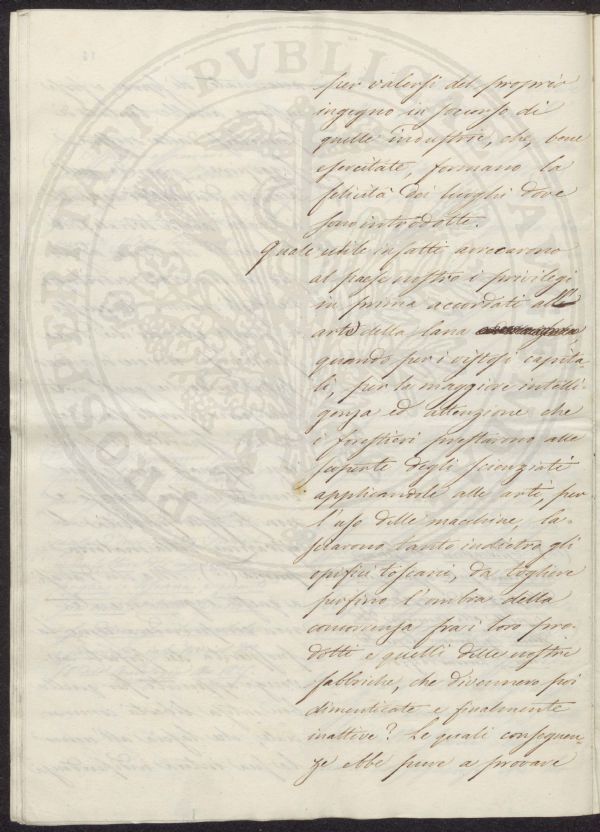 per valersi del proprio
ingegno in soccorso di
quelle industrie, che, bene
esercitate, formano la
felicità dei luoghi dove
sono introdotte.
Quale utile infatti arrecarono
al paese nostro i privilegi
in prima accordati all'
arte della lana
quando per i vistosi capita-
li, per la maggiore intelli-
genza ed attenzione che
i forestieri prestarono alle
scoperte degli scienziati
applicandole alle arti, per
l'uso delle macchine, la-
sciarono tanto indietro gli
opifici toscani, da togliere
perfino l'ombra della
concorrenza fra i loro pro-
dotti e quelli delle nostre
fabbriche, che divennero poi
dimenticate e finalmente
inattive? Le quali conseguen-
ze ebbe pure a provare
PROSPERITATI PVBLICAE